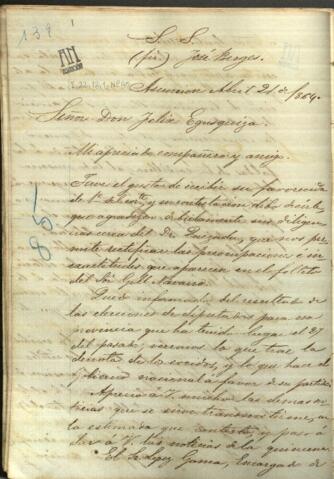 139
S. S.
(fir) José Berges.
Asuncion Abril 21 de 1864.
Señor Don Felix Egusquiza.
Mi apreciado compañero y amigo.
Tuve el gusto de recibir su favorecida
de 1º del cte, y en contestacion debo decirle,
que agradezco debidamente sus diligen
cias cerca del Dr. Quesada, que nos per
mite rectificar las preocupaciones é in
exactitudes que aparecen en el folleto
del Sor Gelly
Quedo informado del resultado de
las elecciones de diputados para esa
provincia que han tenido lugar el 27
del pasado; veremos lo que trae la
derrota de los cocidos, y lo que hace el
nacional a favor de su partido.
Aprecio a V. mucho las demas no
ticias que se sirve transmitirme, en
la estimada que contesto, y paso á
dar á V. las noticias de la quincena
El Sr Lopez Gama, Encargado de